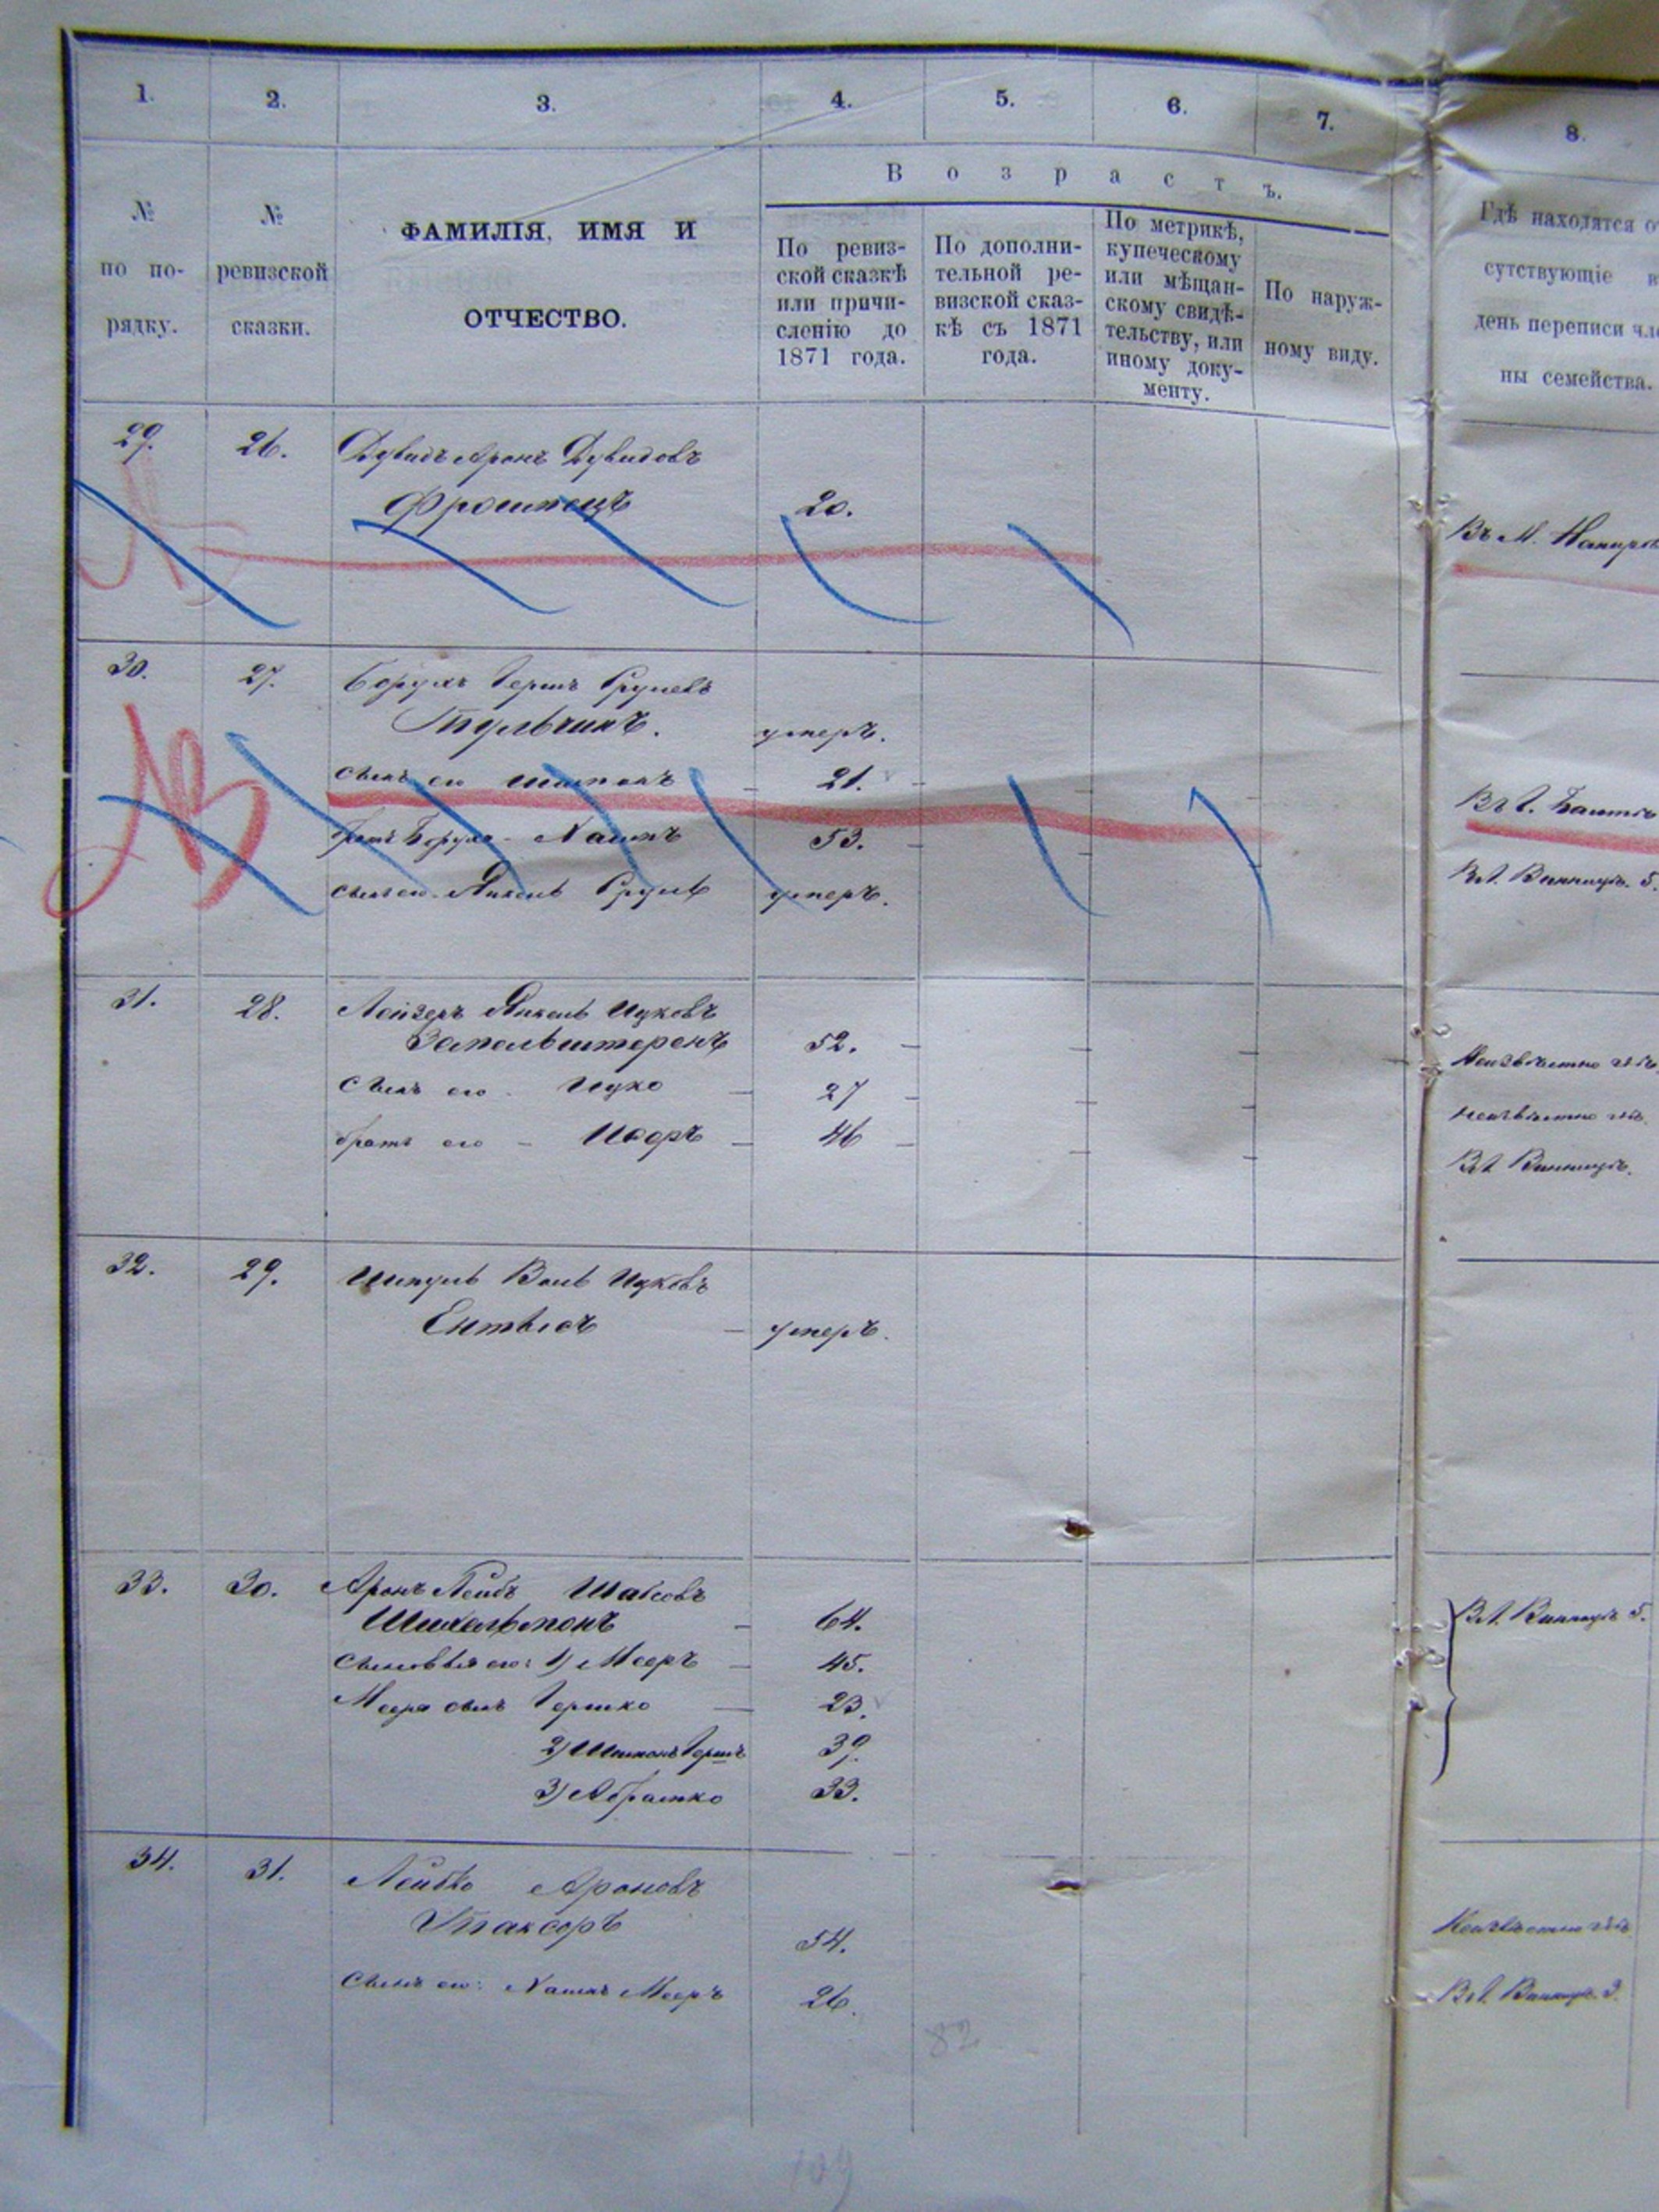 1. 2. 3. 4. 5. 6. 7. 8.
№ по по-рядку.
№ ревизской сказки.
ФАМИЛІЯ, ИМЯ И
ОТЧЕСТВО.
Возрастъ.
По ревиз-
ской сказкѣ
или причи-
сленію до
1871 года.
По дополни-
тельной ре-
визской сказ-
кѣ съ 1871
года.
По метрикѣ,
купеческому
или мѣщан-
скому свидѣ-
тельству, или
иному доку-
менту.
По наруж-
ному виду.
Гдѣ находятся от
сутствующіе в
день переписи чле
ны семейства.
29. 26. Дувидъ Аронъ Дувидовъ
20. Въ М.
30. 27. Борухъ Гершъ Срулевъ
Тульчинъ. умеръ.
сынъ его Шимонъ 21. Въ г.
братъ Боруха - Хаимъ 53. Въ г. Винницѣ. 5.
сынъ его Янкель Сруль умеръ.
31. 28. Лейзеръ Янкель Ицковъ
Запельштеренъ 52. Неизвѣстно гдѣ
Сынъ его Ицко 27 неизвѣстно гдѣ.
братъ его - Іосфъ 46 Въ г. Винницѣ.
32. 29. Шмуль Вольъ Ицковъ
Ентысъ умеръ.
33. 30. Аронъ Лейбъ Шабсовъ
Шихельмонъ 64. Въ г. Винницѣ 5.
Сыновья его: 1) Мееръ 45.
Меера сынъ Гершко 23.
2) Шимонъ Гершъ 39.
3) Абрамко 33.
34. 31. Лейбко Ароновъ
Таксеръ 54. Неизвѣстно гдѣ
Сынъ его: Хаимъ Мееръ 26. Въ г. Винницѣ. 3.
82
109